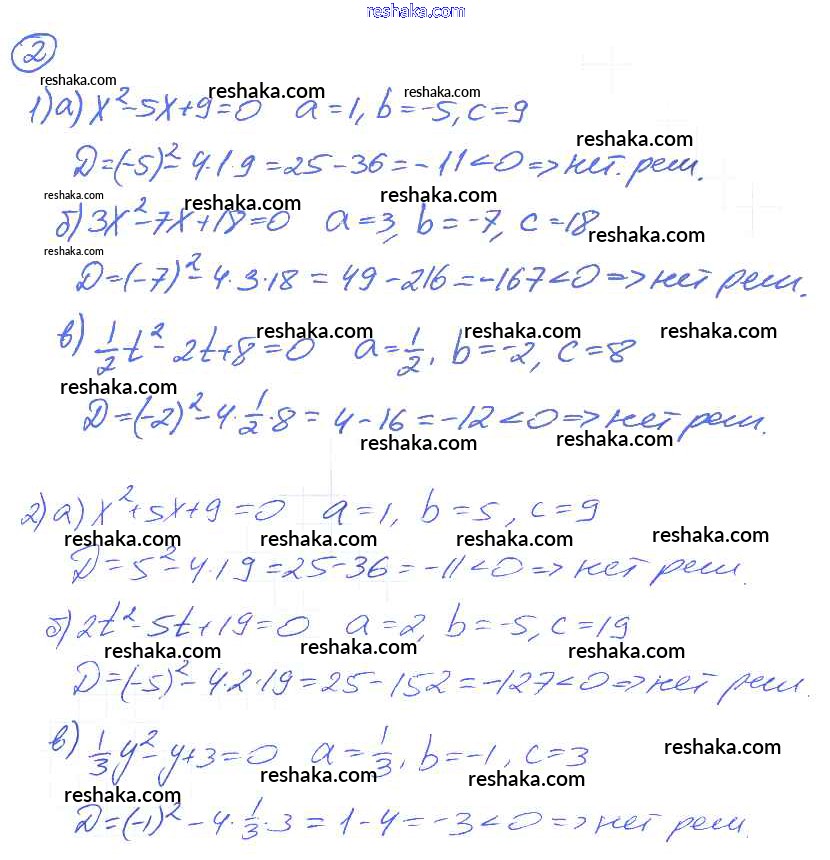 reshaka.com
2
reshaka.com reshaka.com reshaka.com
1) а) x²-5x+9=0 a=1, b=-5, c=9
reshaka.com
D=(-5)²-4·1·9=25-36=-11<0=>нет. реш.
reshaka.com reshaka.com reshaka.com
б) 3x²-7x+18=0 a=3, b=-7, c=18
reshaka.com
reshaka.com
D=(-7)²-4·3·18=49-216=-167<0=>нет реш.
reshaka.com reshaka.com reshaka.com
в) 1/2t²-2t+8=0 a=1/2, b=-2, c=8
reshaka.com
D=(-2)²-4·1/2·8=4-16=-12<0=>нет реш.
reshaka.com reshaka.com
2) а) x²+5x+9=0 a=1, b=5, c=9
reshaka.com reshaka.com reshaka.com reshaka.com
D=5²-4·1·9=25-36=-11<0=>нет реш.
б) 2t²-5t+19=0 a=2, b=-5, c=19
reshaka.com reshaka.com reshaka.com
D=(-5)²-4·2·19=25-152=-127<0=>нет реш.
в) 1/3y²-y+3=0 a=1/3, b=-1, c=3
reshaka.com
reshaka.com reshaka.com
reshaka.com
D=(-1)²-4·1/3·3=1-4=-3<0=>нет реш.